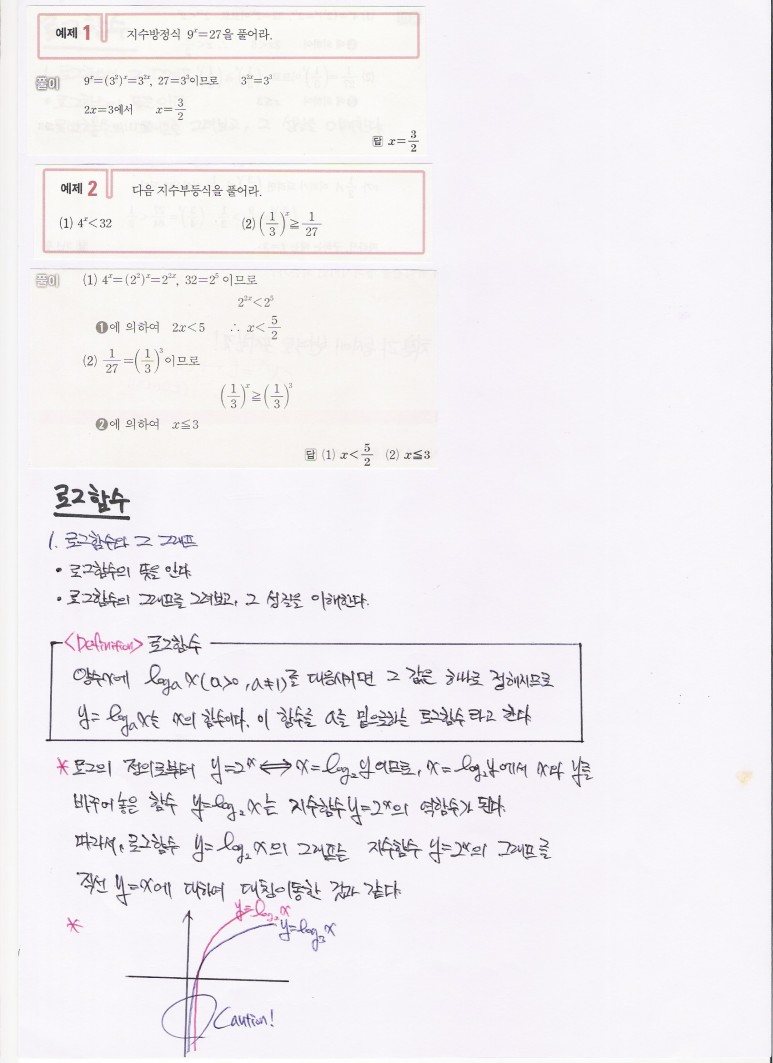 예제 1 지수방정식 9ˣ=27을 풀어라.
풀이 9ˣ=(3²)ˣ=3²ˣ, 27=3³이므로 3²ˣ=3³
2x=3에서 x=3/2
답 x=3/2
예제 2 다음 지수부등식을 풀어라.
(1) 4ˣ<32 (2) (1/3)ˣ≧1/27
풀이 (1) 4ˣ=(2²)ˣ=2²ˣ, 32=2⁵이므로
2²ˣ<2⁵
❶에 의하여 2x<5 ∴ x<5/2
(2) 1/27=(1/3)³이므로
(1/3)ˣ≧(1/3)³
❷에 의하여 x≦3
답 (1) x<5/2 (2) x≦3
로그함수
1. 로그함수와 그 그래프
• 로그함수의 뜻을 안다.
• 로그함수의 그래프를 그려보고, 그 성질을 이해한다.
<Definition> 로그함수
양수x에 logₐx(a>0, a≠1)를 대응시키면 그 값은 하나로 정해지므로
y=logₐx는 x의 함수이다. 이 함수를 a를 밑으로하는 로그함수라고 한다.
* 로그의 정의로부터 y=2ˣ ⟺ x=log₂y이므로, x=log₂y에서 x와 y를
바꾸어놓은 함수 y=log₂x는 지수함수 y=2ˣ의 역함수가 된다.
따라서, 로그함수 y=log₂x의 그래프는 지수함수 y=2ˣ의 그래프를
직선 y=x에 대하여 대칭이동한 것과 같다.
*
y=log₂x
y=log₃x
Caution!